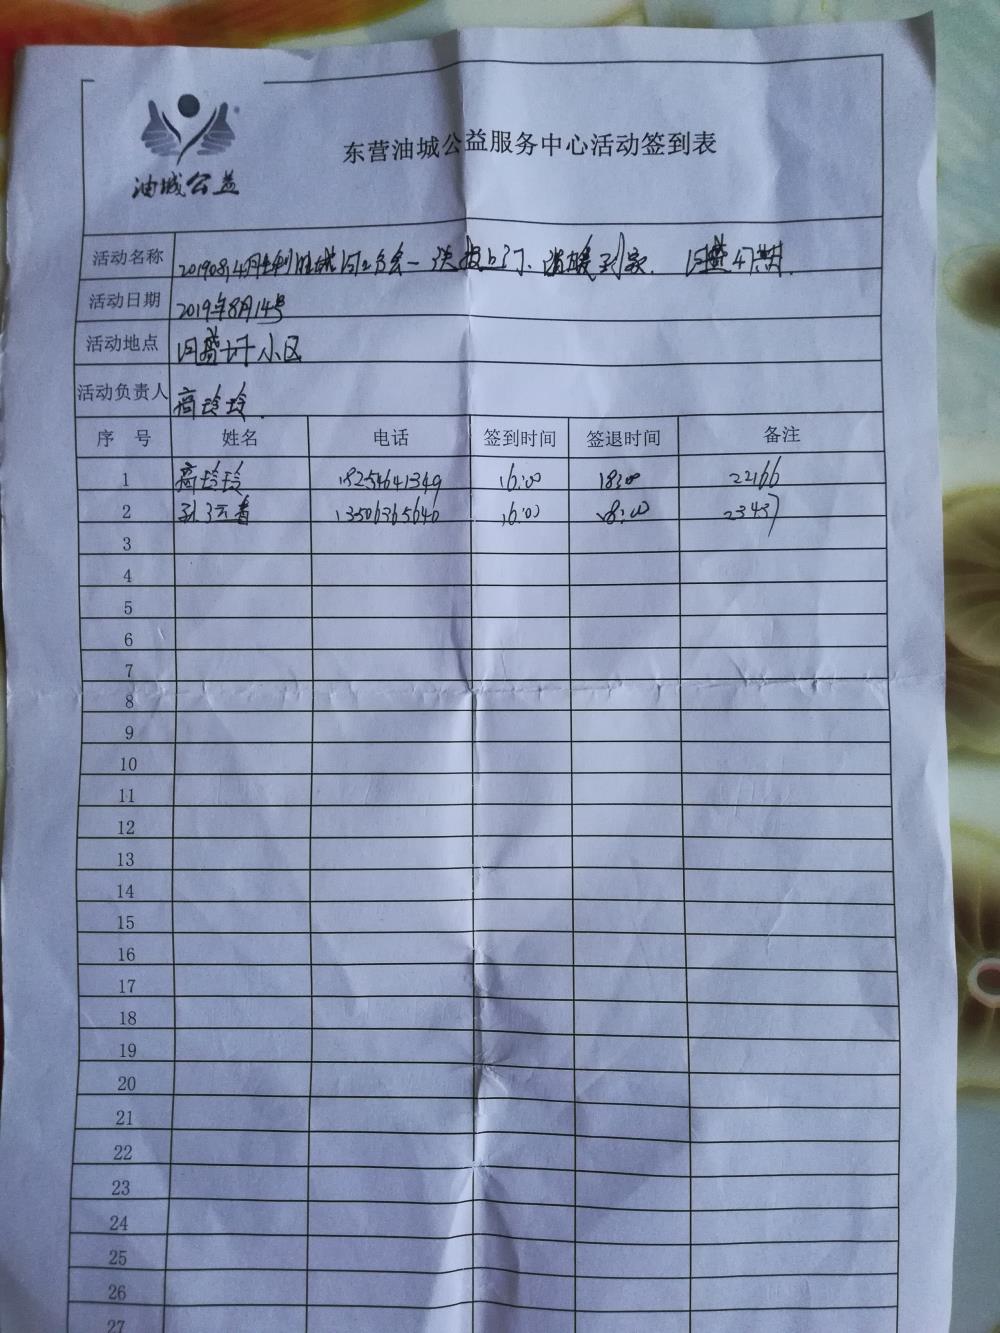 东营油城公益服务中心活动签到表
油城公益
活动名称 送报上门、温暖到家.
活动日期 2019年8月14号
活动地点 小区
活动负责人 高玲玲.
序 号 姓名 电话 签到时间 签退时间 备注
1 高玲玲 18254641349 16:00 18:00 22166
2 13506365640 16:00 18:00 23437
3
4
5
6
7
8
9
10
11
12
13
14
15
16
17
18
19
20
21
22
23
24
25
26
27